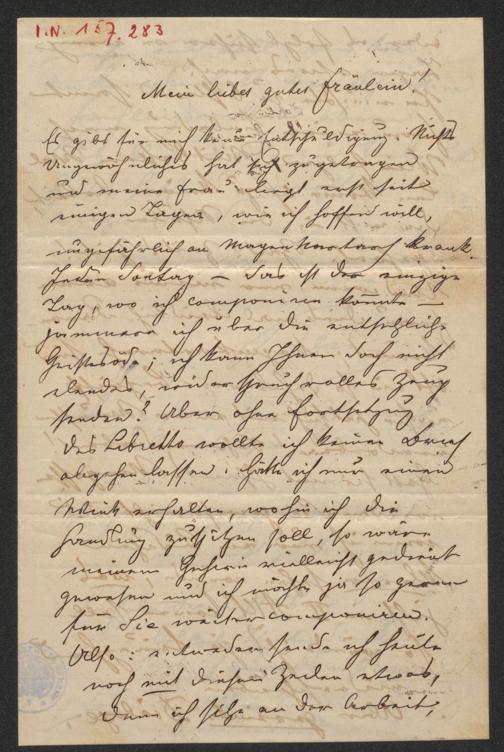 I.N. 157.283
Mein liebes gutes Fräulein!
Es gibt für mich keine Entschuldigung. Nichts
Ungewöhnliches hat sich zugetragen
und meine Frau liegt erst seit
einigen Tagen, wie ich hoffen will,
ungefährlich an Magenkatarrh krank.
Jeden Sontag – das ist der einzige
Tag, wo ich componiren könnte –
jammere ich über die entsetzliche
Geistesöde; ich kann Ihnen doch nicht
elendes, widerspruchvolles Zeug
senden? Aber ohne Fortsetzung
des Libretto wollte ich keinen Brief
abgehen lassen. Hätte ich nur einen
Wink erhalten, wohin ich die
Handlung zuspitzen soll, so wäre
meinem Gehirn vielleicht gedient
gewesen und ich möchte ja so gerne
für Sie weiter componiren.
Also: entweder sende ich heute
noch mit diesen Zeilen etwas,
denn ich sitze an der Arbeit,